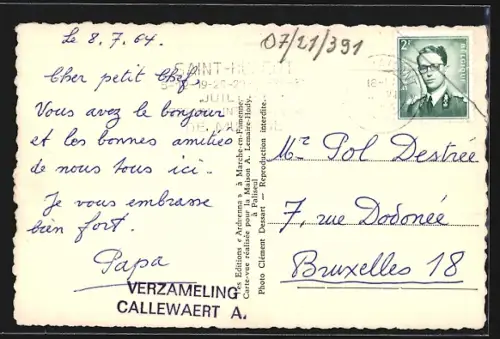 Le 8.7.64.
07/21/391
Cher petit Chef.
Vous avez le bonjour
et les bonnes amitiés
de nous tous ici.
Je vous embrasse
bien fort.
Papa
VERZAMELING
CALLEWAERT A.
Les Editions « Ardenna » à Marche-en-Famenne
Carte-vue réalisée pour la Maison A. Lemaire-Hudy,
à Paliseul
Photo Clément Dessart — Reproduction interdite.
SAINT-HUBERT
JUIL
2F
BELGIQUE
Mr Pol Destrée
7, rue Dodonée
Bruxelles 18